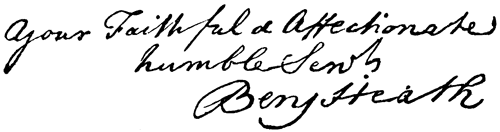 your Faithful & Affectionate
humble Servt
Benj Heath